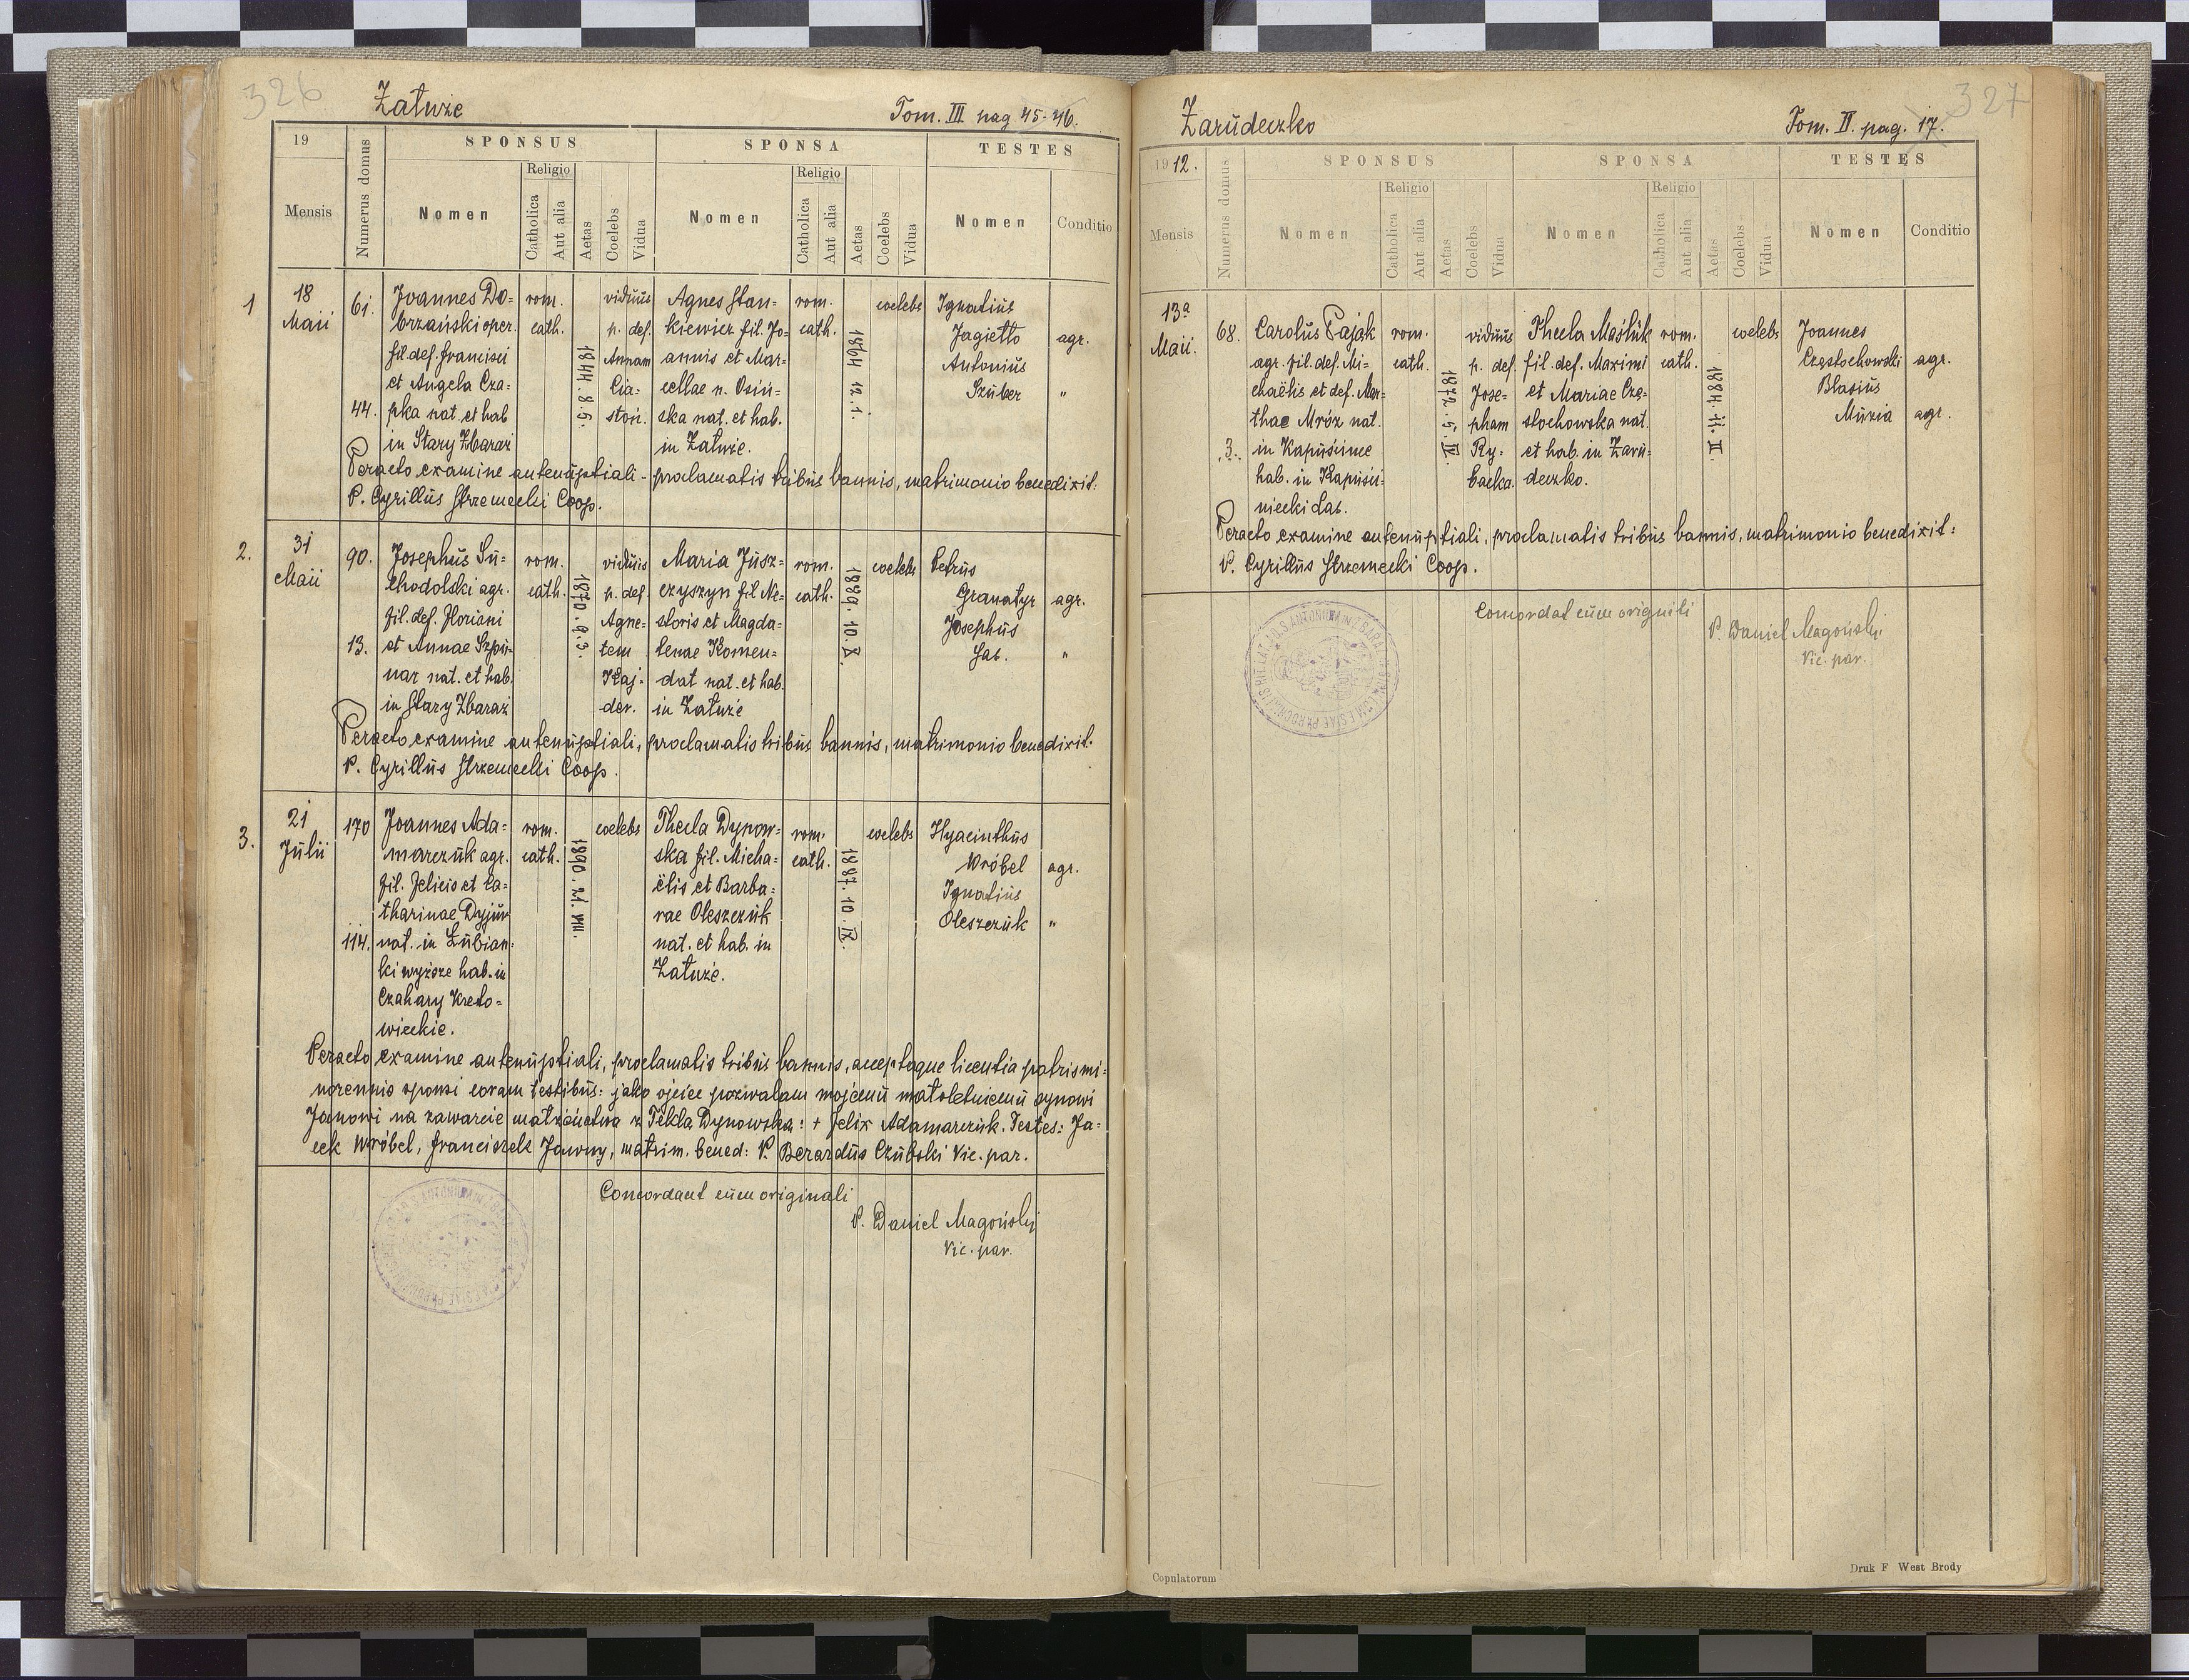 326
Załuże
Tom. III pag 45-46.
19
Mensis
Numerus domus
SPONSUS
SPONSA
TESTES
Nomen
Religio
Catholica
Aut alia
Aetas
Coelebs
Vidua
Nomen
Religio
Catholica
Aut alia
Aetas
Coelebs
Vidua
Nomen
Conditio
1
18
Maii
61.
44.
Joannes Do=
brzański oper.
fil. def. Francisci
et Angela Cza=
pka nat. et hab
in Stary Zbaraż
rom.
cath.
1844 8.5.
viduus
p. def.
Annam
Cia=
stoń.
Agnes Stan=
kiewicz fil. Jo=
annis et Mar=
cellae n. Osiń=
ska nat. et hab.
in Załuże.
rom.
cath.
1864 12.1.
coelebs
Ignatius
Jagiełło
Antonius
Szuber
agr.
"
Peracto examine antenuptiali - proclamatis tribus bannis, matrimonio benedixit:
P. Cyrillus Strzemecki Coop.
2.
31
Maii
90.
13.
Josephus Su=
chodolski agr.
fil. def. Floriani
et Annae Szpu=
nar nat. et hab.
in Stary Zbaraż
rom.
cath.
1870. 9. 3.
viduus
p. def
Agne=
tem
Kaj=
der.
Maria Jusz=
czyszyn fil Ne=
storis et Magda=
lenae Komen=
dat nat. et hab.
in Załuże
rom.
cath.
1889. 10. X.
coelebs
Petrus
Granatyr
Josephus
Łab.
agr.
"
Peracto examine antenuptiali, proclamatis tribus bannis, matrimonio benedixit.
P. Cyrillus Strzemecki Coop.
3.
21
Julii
170
114.
Joannes Ada=
marczuk agr.
fil. Felicis et Ca=
tharinae Dyjur
nat. in Łubian=
ki wyższe hab. in
Czahary Kreto=
wieckie.
rom.
cath.
1890. 21. VIII.
coelebs
Thecla Dynow=
ska fil. Micha=
ëlis et Barba=
rae Oleszczuk
nat. et hab. in
Załuże.
rom.
cath.
1887. 10. IX.
coelebs
Hyacinthus
Wróbel
Ignatius
Oleszczuk
agr.
"
Peracto examine antenuptiali, proclamatis tribus bannis, acceptaque licentia patris mi=
norennis sponsi coram testibus: jako ojciec pozwalam mojemu małoletniemu synowi
Janowi na zawarcie małżeństwa z Teklą Dynowską: + Felix Adamarczuk. Testes: Ja=
cek Wróbel, Franciszek Jawny, matrim. bened: P. Berardus Czubski Vic. par.
Concordant cum originali
P. Daniel Magoński
Vic. par.
327
Zarudeczko
Tom. II. pag. 17.
1912.
Mensis
Numerus domus
SPONSUS
SPONSA
TESTES
Nomen
Religio
Catholica
Aut alia
Aetas
Coelebs
Vidua
Nomen
Religio
Catholica
Aut alia
Aetas
Coelebs
Vidua
Nomen
Conditio
13a
Maii.
68.
3.
Carolus Pająk
agr. fil. def. Mi=
chaëlis et def. Mar=
thae Mróz nat.
in Kapuśince
hab. in Kapuśi=
niecki Las.
rom.
cath.
1872. 5. IV.
viduus
p. def.
Jose=
pham
Ry=
backa.
Thecla Maśluk
fil. def. Maximi
et Mariae Czę=
stochowska nat.
et hab. in Zaru=
deczko.
rom.
cath.
1884. 11. II.
coelebs
Joannes
Częstochowski
Blasius
Muzia
agr.
agr.
Peracto examine antenuptiali, proclamatis tribus bannis, matrimonio benedixit:
P. Cyrillus Strzemecki Coop.
Concordat cum originili
P. Daniel Magoński
Vic. par.
Copulatorum
Druk F West Brody